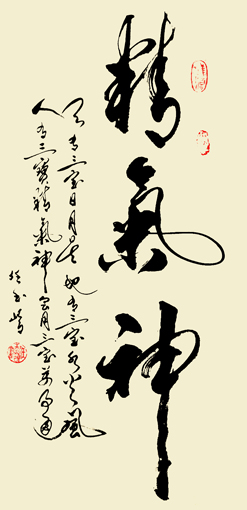 精氣神
天有三宝日月星地有三宝水火風
人有三寶精氣神会用三宝萬事通